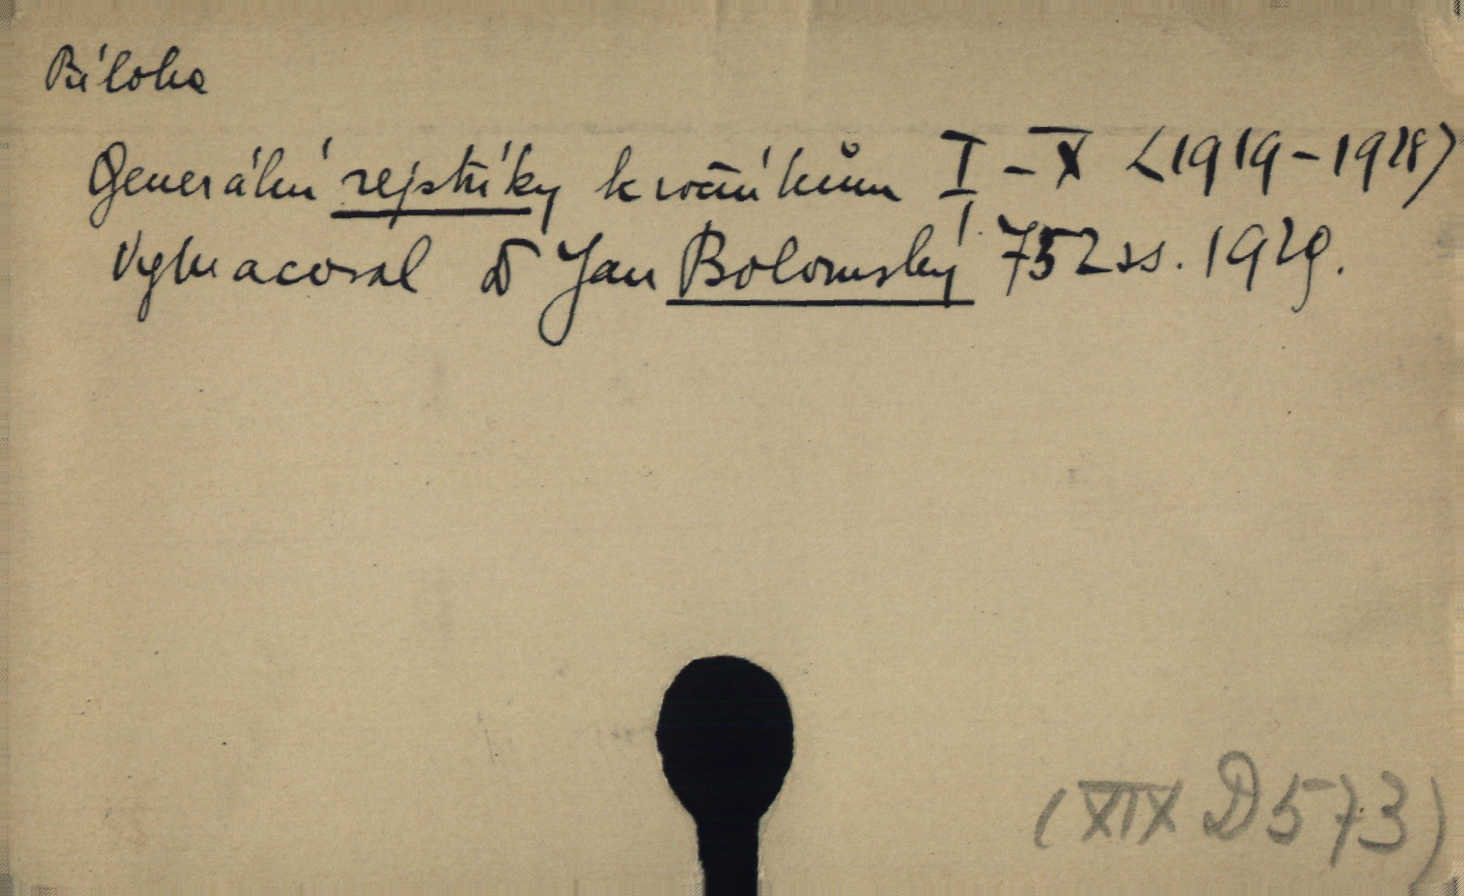 Příloha
Generální rejstříky k ročníkům I-X <1919-1928>
Vypracoval Dr Jan Bolomský. 752 ss. 1929.
(XIX D 573)